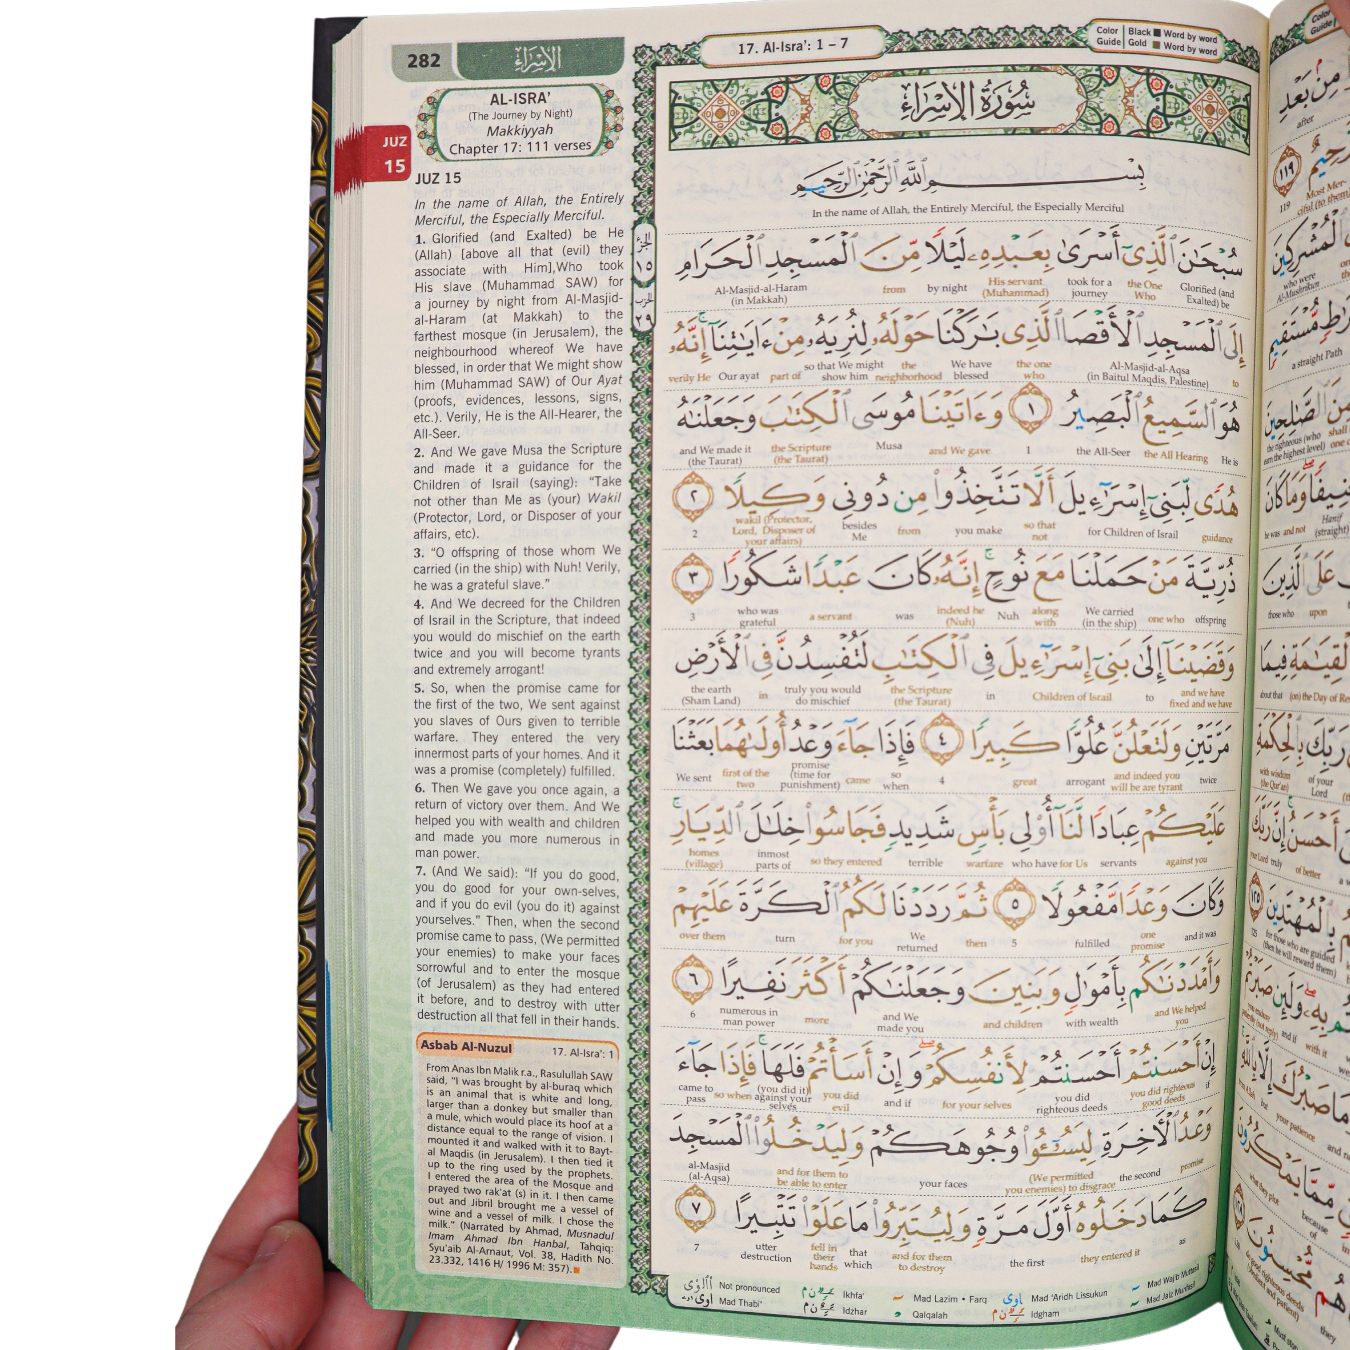 282
الإسراء
AL-ISRA'
(The Journey by Night)
Makkiyyah
Chapter 17: 111 verses
JUZ
15
JUZ 15
In the name of Allah, the Entirely
Merciful, the Especially Merciful.
1. Glorified (and Exalted) be He
(Allah) [above all that (evil) they
associate with Him],Who took
His slave (Muhammad SAW) for
a journey by night from Al-Masjid-
al-Haram (at Makkah) to the
farthest mosque (in Jerusalem), the
neighbourhood whereof We have
blessed, in order that We might show
him (Muhammad SAW) of Our Ayat
(proofs, evidences, lessons, signs,
etc.). Verily, He is the All-Hearer, the
All-Seer.
2. And We gave Musa the Scripture
and made it a guidance for the
Children of Israil (saying): "Take
not other than Me as (your) Wakil
(Protector, Lord, or Disposer of your
affairs, etc).
3. "O offspring of those whom We
carried (in the ship) with Nuh! Verily,
he was a grateful slave."
4. And We decreed for the Children
of Israil in the Scripture, that indeed
you would do mischief on the earth
twice and you will become tyrants
and extremely arrogant!
5. So, when the promise came for
the first of the two, We sent against
you slaves of Ours given to terrible
warfare. They entered the very
innermost parts of your homes. And it
was a promise (completely) fulfilled.
6. Then We gave you once again, a
return of victory over them. And We
helped you with wealth and children
and made you more numerous in
man power.
7. (And We said): "If you do good,
you do good for your own-selves,
and if you do evil (you do it) against
yourselves." Then, when the second
promise came to pass, (We permitted
your enemies) to make your faces
sorrowful and to enter the mosque
(of Jerusalem) as they had entered
it before, and to destroy with utter
destruction all that fell in their hands.
Asbab Al-Nuzul 17. Al-Isra': 1
From Anas Ibn Malik r.a., Rasulullah SAW
said, "I was brought by al-buraq which
is an animal that is white and long,
larger than a donkey but smaller than
a mule, which would place its hoof at a
distance equal to the range of vision. I
mounted it and walked with it to Bayt-
al Maqdis (in Jerusalem). I then tied it
up to the ring used by the prophets.
I entered the area of the Mosque and
prayed two rak'at (s) in it. I then came
out and Jibril brought me a vessel of
wine and a vessel of milk. I chose the
milk." (Narrated by Ahmad, Musnadul
Imam Ahmad Ibn Hanbal, Tahqiq:
Syu'aib Al-Arnaut, Vol. 38, Hadith No.
23.332, 1416 H/ 1996 M: 357).
17. Al-Isra': 1 – 7
Color Guide Black Word by word
Gold Word by word
سُورَةُ الإِسْرَاءِ
بِسْمِ اللَّهِ الرَّحْمَٰنِ الرَّحِيمِ
In the name of Allah, the Entirely Merciful, the Especially Merciful
الجزء
١٥
الحزب
٢٩
سُبْحَٰنَ ٱلَّذِىٓ أَسْرَىٰ بِعَبْدِهِۦ لَيْلًا مِّنَ ٱلْمَسْجِدِ ٱلْحَرَامِ
Glorified (and Exalted) be the One Who took for a journey His servant (Muhammad) by night from Al-Masjid-al-Haram (in Makkah)
إِلَى ٱلْمَسْجِدِ ٱلْأَقْصَا ٱلَّذِى بَٰرَكْنَا حَوْلَهُۥ لِنُرِيَهُۥ مِنْ ءَايَٰتِنَآ ۚ إِنَّهُۥ
to Al-Masjid-al-Aqsa (in Baitul Maqdis, Palestine) the one who We have blessed the neighborhood so that We might show him part of Our ayat verily He
هُوَ ٱلسَّمِيعُ ٱلْبَصِيرُ ١ وَءَاتَيْنَا مُوسَى ٱلْكِتَٰبَ وَجَعَلْنَٰهُ
He is the All Hearing the All-Seer 1 and We gave Musa the Scripture (the Taurat) and We made it (the Taurat)
هُدًى لِّبَنِىٓ إِسْرَٰٓءِيلَ أَلَّا تَتَّخِذُوا۟ مِن دُونِى وَكِيلًا ٢
guidance for Children of Israil so that not you make from besides Me wakil (Protector, Lord, Disposer of your affairs) 2
ذُرِّيَّةَ مَنْ حَمَلْنَا مَعَ نُوحٍ ۚ إِنَّهُۥ كَانَ عَبْدًا شَكُورًا ٣
offspring one who We carried (in the ship) along with Nuh indeed he (Nuh) was a servant who was grateful 3
وَقَضَيْنَآ إِلَىٰ بَنِىٓ إِسْرَٰٓءِيلَ فِى ٱلْكِتَٰبِ لَتُفْسِدُنَّ فِى ٱلْأَرْضِ
and we have fixed and we have to Children of Israil in the Scripture (the Taurat) truly you would do mischief in the earth (Sham Land)
مَرَّتَيْنِ وَلَتَعْلُنَّ عُلُوًّا كَبِيرًا ٤ فَإِذَا جَآءَ وَعْدُ أُولَىٰهُمَا بَعَثْنَا
twice and indeed you will be are tyrant arrogant great 4 so when came promise (time for punishment) first of the two We sent
عَلَيْكُمْ عِبَادًا لَّنَآ أُو۟لِى بَأْسٍ شَدِيدٍ فَجَاسُوا۟ خِلَٰلَ ٱلدِّيَارِ ۚ
against you servants for Us who have warfare terrible so they entered inmost parts of homes (village)
وَكَانَ وَعْدًا مَّفْعُولًا ٥ ثُمَّ رَدَدْنَا لَكُمُ ٱلْكَرَّةَ عَلَيْهِمْ
and it was one promise fulfilled 5 then We returned for you turn over them
وَأَمْدَدْنَٰكُم بِأَمْوَٰلٍ وَبَنِينَ وَجَعَلْنَٰكُمْ أَكْثَرَ نَفِيرًا ٦
and We helped you with wealth and children and We made you more numerous in man power 6
إِنْ أَحْسَنتُمْ أَحْسَنتُمْ لِأَنفُسِكُمْ ۖ وَإِنْ أَسَأْتُمْ فَلَهَا ۚ فَإِذَا جَآءَ
if you did righteous good deeds you did righteous deeds for your selves and if you did evil (you did it) against your selves so when came to pass
وَعْدُ ٱلْأَخِرَةِ لِيَسُۥٓـُٔوا۟ وُجُوهَكُمْ وَلِيَدْخُلُوا۟ ٱلْمَسْجِدَ
promise the second (We permitted you enemies) to disgrace your faces and for them to be able to enter al-Masjid (al-Aqsa)
كَمَا دَخَلُوهُ أَوَّلَ مَرَّةٍ وَلِيُتَبِّرُوا۟ مَا عَلَوْا۟ تَتْبِيرًا ٧
as they entered it the first and for them to destroy that which fell in their hands utter destruction 7
Not pronounced Ikhfa' Mad Lazim • Farq Mad 'Aridh Lissukun Mad Wajib Muttasil
Mad Thabi'i Idzhar Qalqalah Idgham Mad Jaiz Munfasil